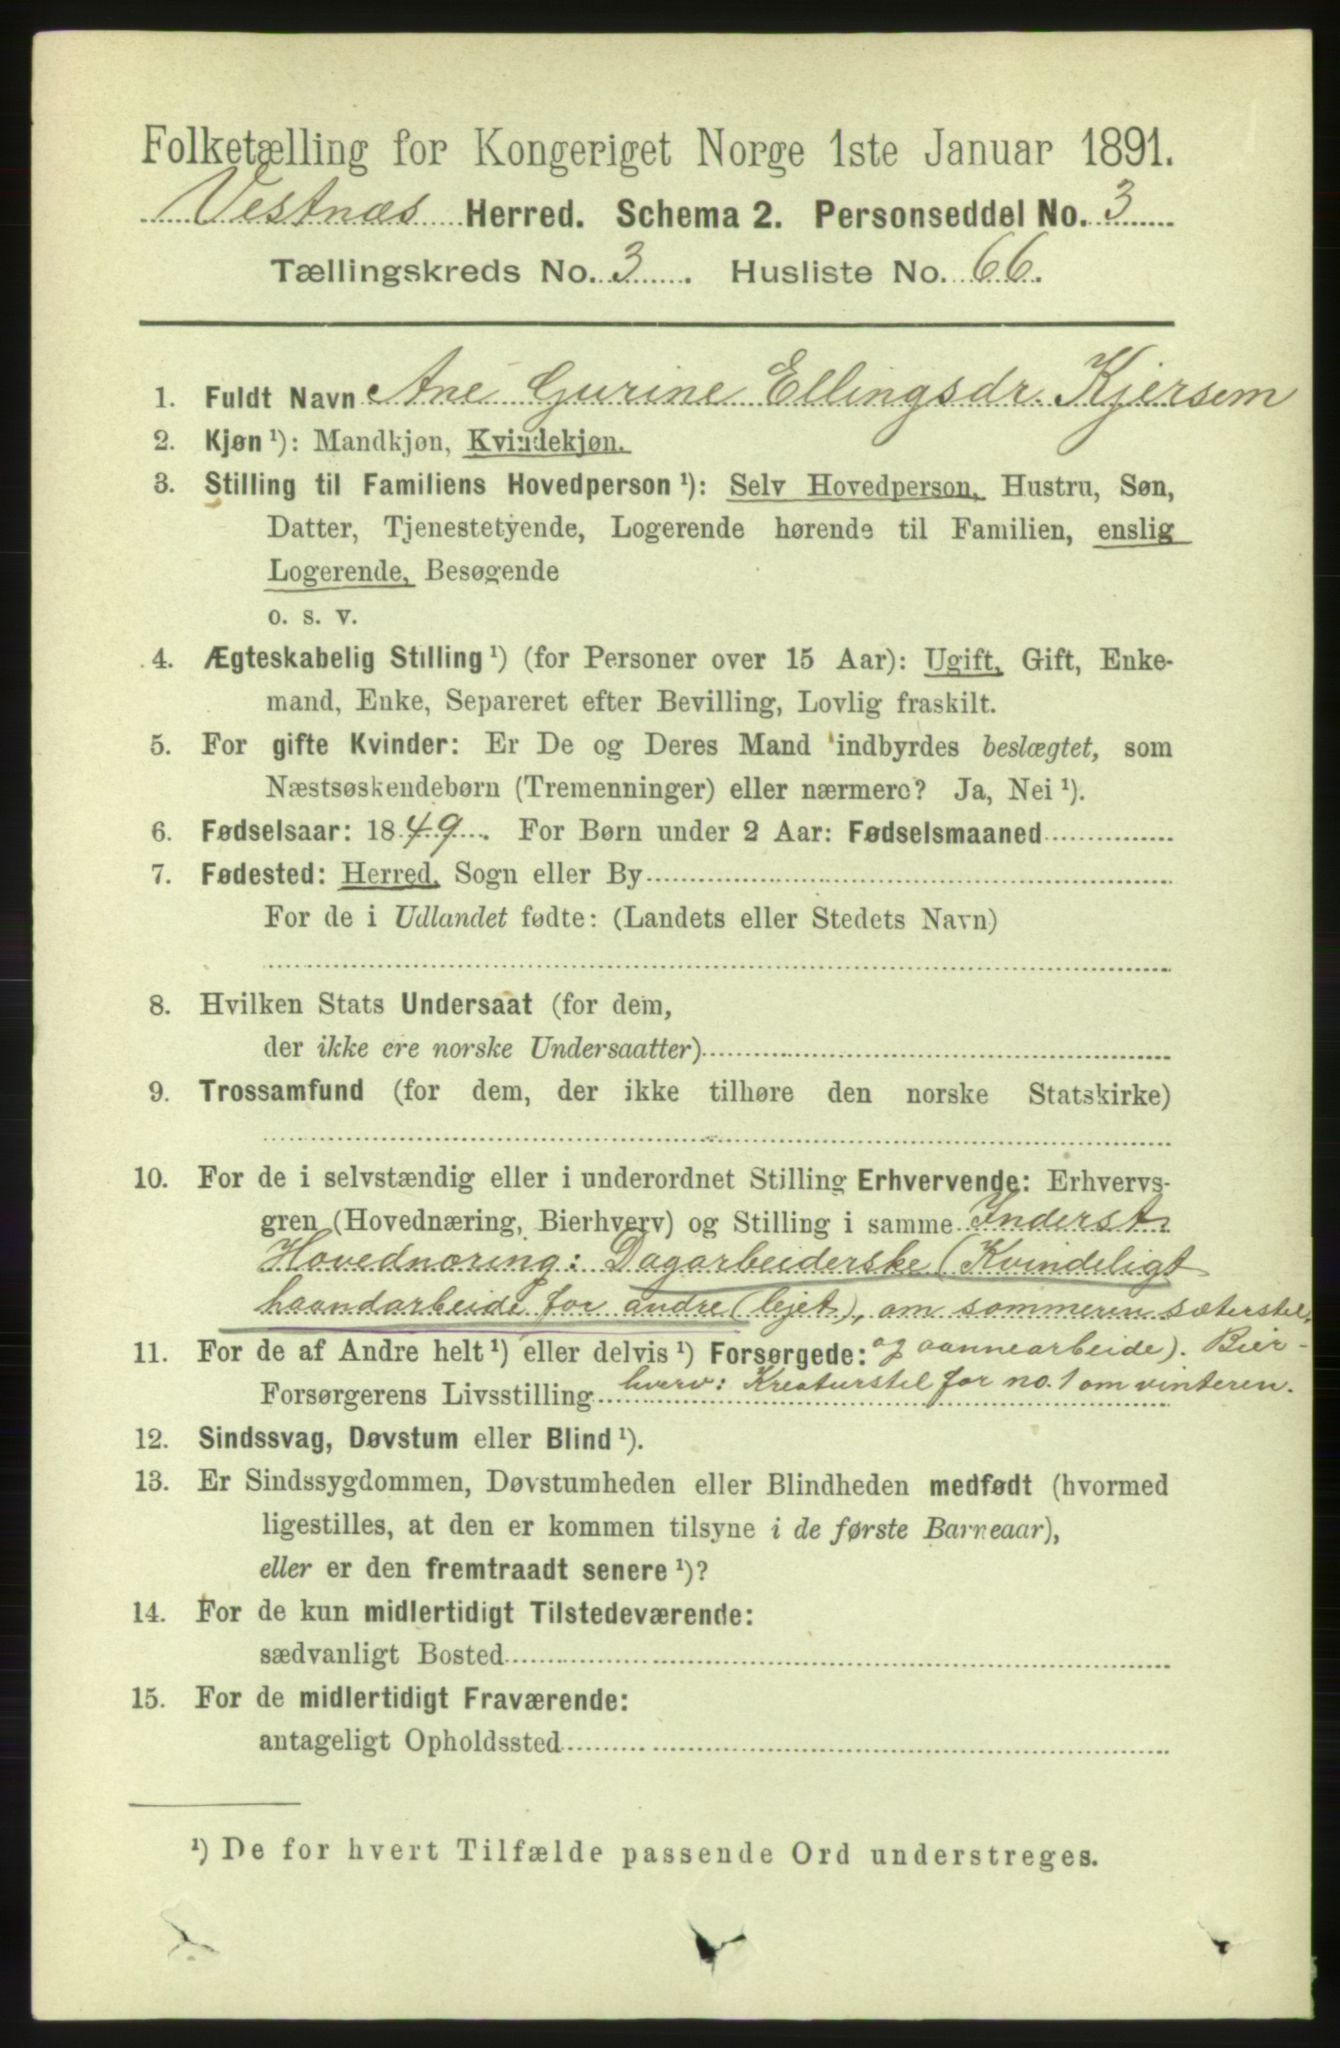 Folketælling for Kongeriget Norge 1ste Januar 1891.
Vestnæs Herred. Schema 2. Personseddel No. 3
Tællingskreds No. 3. Husliste No. 66.
1. Fuldt Navn Ane Gurine Ellingsdr. Kjersem
2. Kjøn ¹): Mandkjøn, Kvindekjøn.
3. Stilling til Familiens Hovedperson ¹): Selv Hovedperson, Hustru, Søn,
Datter, Tjenestetyende, Logerende hørende til Familien, enslig
Logerende, Besøgende
o. s. v.
4. Ægteskabelig Stilling ¹) (for Personer over 15 Aar): Ugift, Gift, Enke-
mand, Enke, Separeret efter Bevilling, Lovlig fraskilt.
5. For gifte Kvinder: Er De og Deres Mand indbyrdes beslægtet, som
Næstsøskendebørn (Tremenninger) eller nærmere? Ja, Nei ¹).
6. Fødselsaar: 1849. For Børn under 2 Aar: Fødselsmaaned
7. Fødested: Herred, Sogn eller By
For de i Udlandet fødte: (Landets eller Stedets Navn)
8. Hvilken Stats Undersaat (for dem,
der ikke ere norske Undersaatter)
9. Trossamfund (for dem, der ikke tilhøre den norske Statskirke)
10. For de i selvstændig eller i underordnet Stilling Erhvervende: Erhvervs-
gren (Hovednæring, Bierhverv) og Stilling i samme Inderst.
Hovednæring: Dagarbeiderske (Kvindeligt
haandarbeide for andre (lejet), om sommeren sæterstel,
11. For de af Andre helt ¹) eller delvis ¹) Forsørgede: og aannearbeide). Bier-
Forsørgerens Livsstilling hverv: Kreaturstel for no. 1 om vinteren.
12. Sindssvag, Døvstum eller Blind ¹).
13. Er Sindssygdommen, Døvstumheden eller Blindheden medfødt (hvormed
ligestilles, at den er kommen tilsyne i de første Barneaar),
eller er den fremtraadt senere ¹)?
14. For de kun midlertidigt Tilstedeværende:
sædvanligt Bosted
15. For de midlertidigt Fraværende:
antageligt Opholdssted
¹) De for hvert Tilfælde passende Ord understreges.